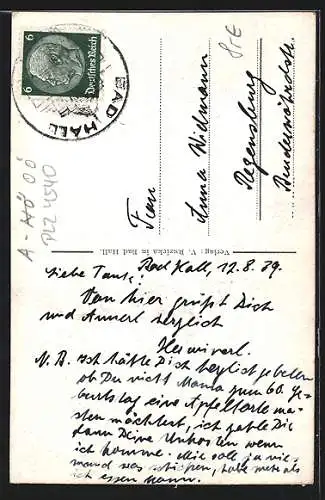 6 6
Deutsches Reich
BAD HALL
Frau
Anna Widmann
Regensburg
A-HÖ OÖ
PLZ 4540
Verlag: V. Ruzicka in Bad Hall.
Bad Hall, 12.8.39.
Liebe Tante!
Von hier grüßt Dich
und Annerl herzlich
N.B. Ich hätte Dich herzlich gebeten
ob Du nicht Mama zum 60. Ge-
burtstag eine Apfeltorte ma-
chen möchtest, ich zahle Dir
dann Deine Unkosten wenn
ich komme. Mir soll ja nie-
mand was schicken, habe mehr als
ich essen kann.